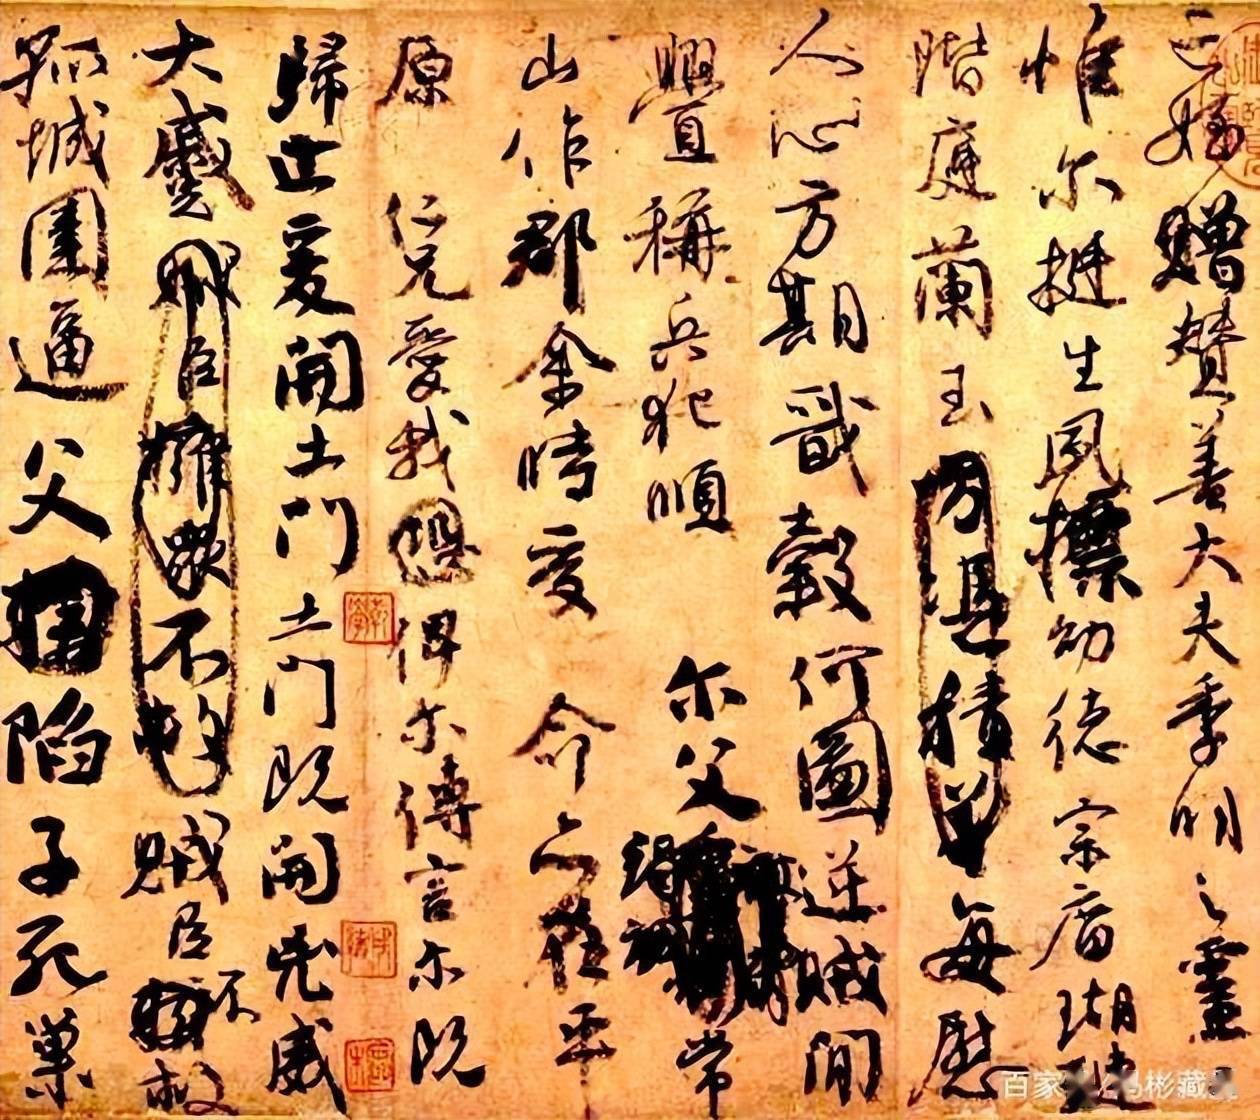 亡姪贈贊善大夫季明之靈
惟尔挺生夙標幼德宗廟瑚璉
階庭蘭玉方憑積善每慰
人心方期戩穀何圖逆賊閒
釁稱兵犯順尔父常
山作郡余時受命亦在平
原仁兄愛我恐俾尔傳言尔既
歸止爰開土門土門既開凶威
大蹙賊臣擁衆不救賊臣不救
孤城圍逼父陷子死巢
百家 彬藏